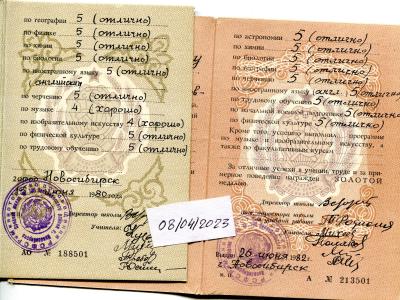 по географии 5 (отлично)
по физике 5 (отлично)
по химии 5 (отлично)
по биологии 5 (отлично)
по иностранному языку 5 (отлично)
(английский)
по черчению 5 (отлично)
по музыке 4 (хорошо)
по изобразительному искусству 4 (хорошо)
по физической культуре 5 (отлично)
по трудовому обучению 5 (отлично)
город Новосибирск
июня 1980 года
Директор школы
Учителя:
АО № 188501
08/04/2023
по астрономии 5 (отлично)
по химии 5 (отлично)
по биологии 5 (отлично)
по географии 5 (отлично)
по черчению 5 (отлично)
по иностранному (англ.) 5 (отлично)
по трудовому обучению 5 (отлично)
по начальной военной подготовке 5 (отлично)
по физической культуре 5 (отлично)
Кроме того, успешно выполнил программу
по музыке, изобразительному искусству, а
также по факультативным курсам
За отличные успехи в учении, труде и за при-
мерное поведение награжден ЗОЛОТОЙ
медалью.
Директор школы
Учителя:
Выдан 26 июня 1982 г.
г. Новосибирск
М. П.
А № 213501